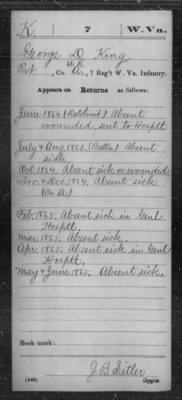 K | 7 | W. Va.
George D. King
Pvt, Co. A, 7 Reg't W. Va. Infantry.
Appears on
Returns as follows:
June 1864. Absent
wounded, sent to Hosptl
July & Aug. 1864. Absent
sick.
Oct. 1864. Absent sick or wounded.
Nov. & Dec. 1864. Absent sick
(Co A)
Feb. 1865. Absent sick in Genl
Hosptl.
Mar. 1865. Absent sick.
Apr. 1865. Absent sick in Genl
Hosptl.
May & June 1865. Absent sick.
Book mark:
J. B. Sitler
Copyist.